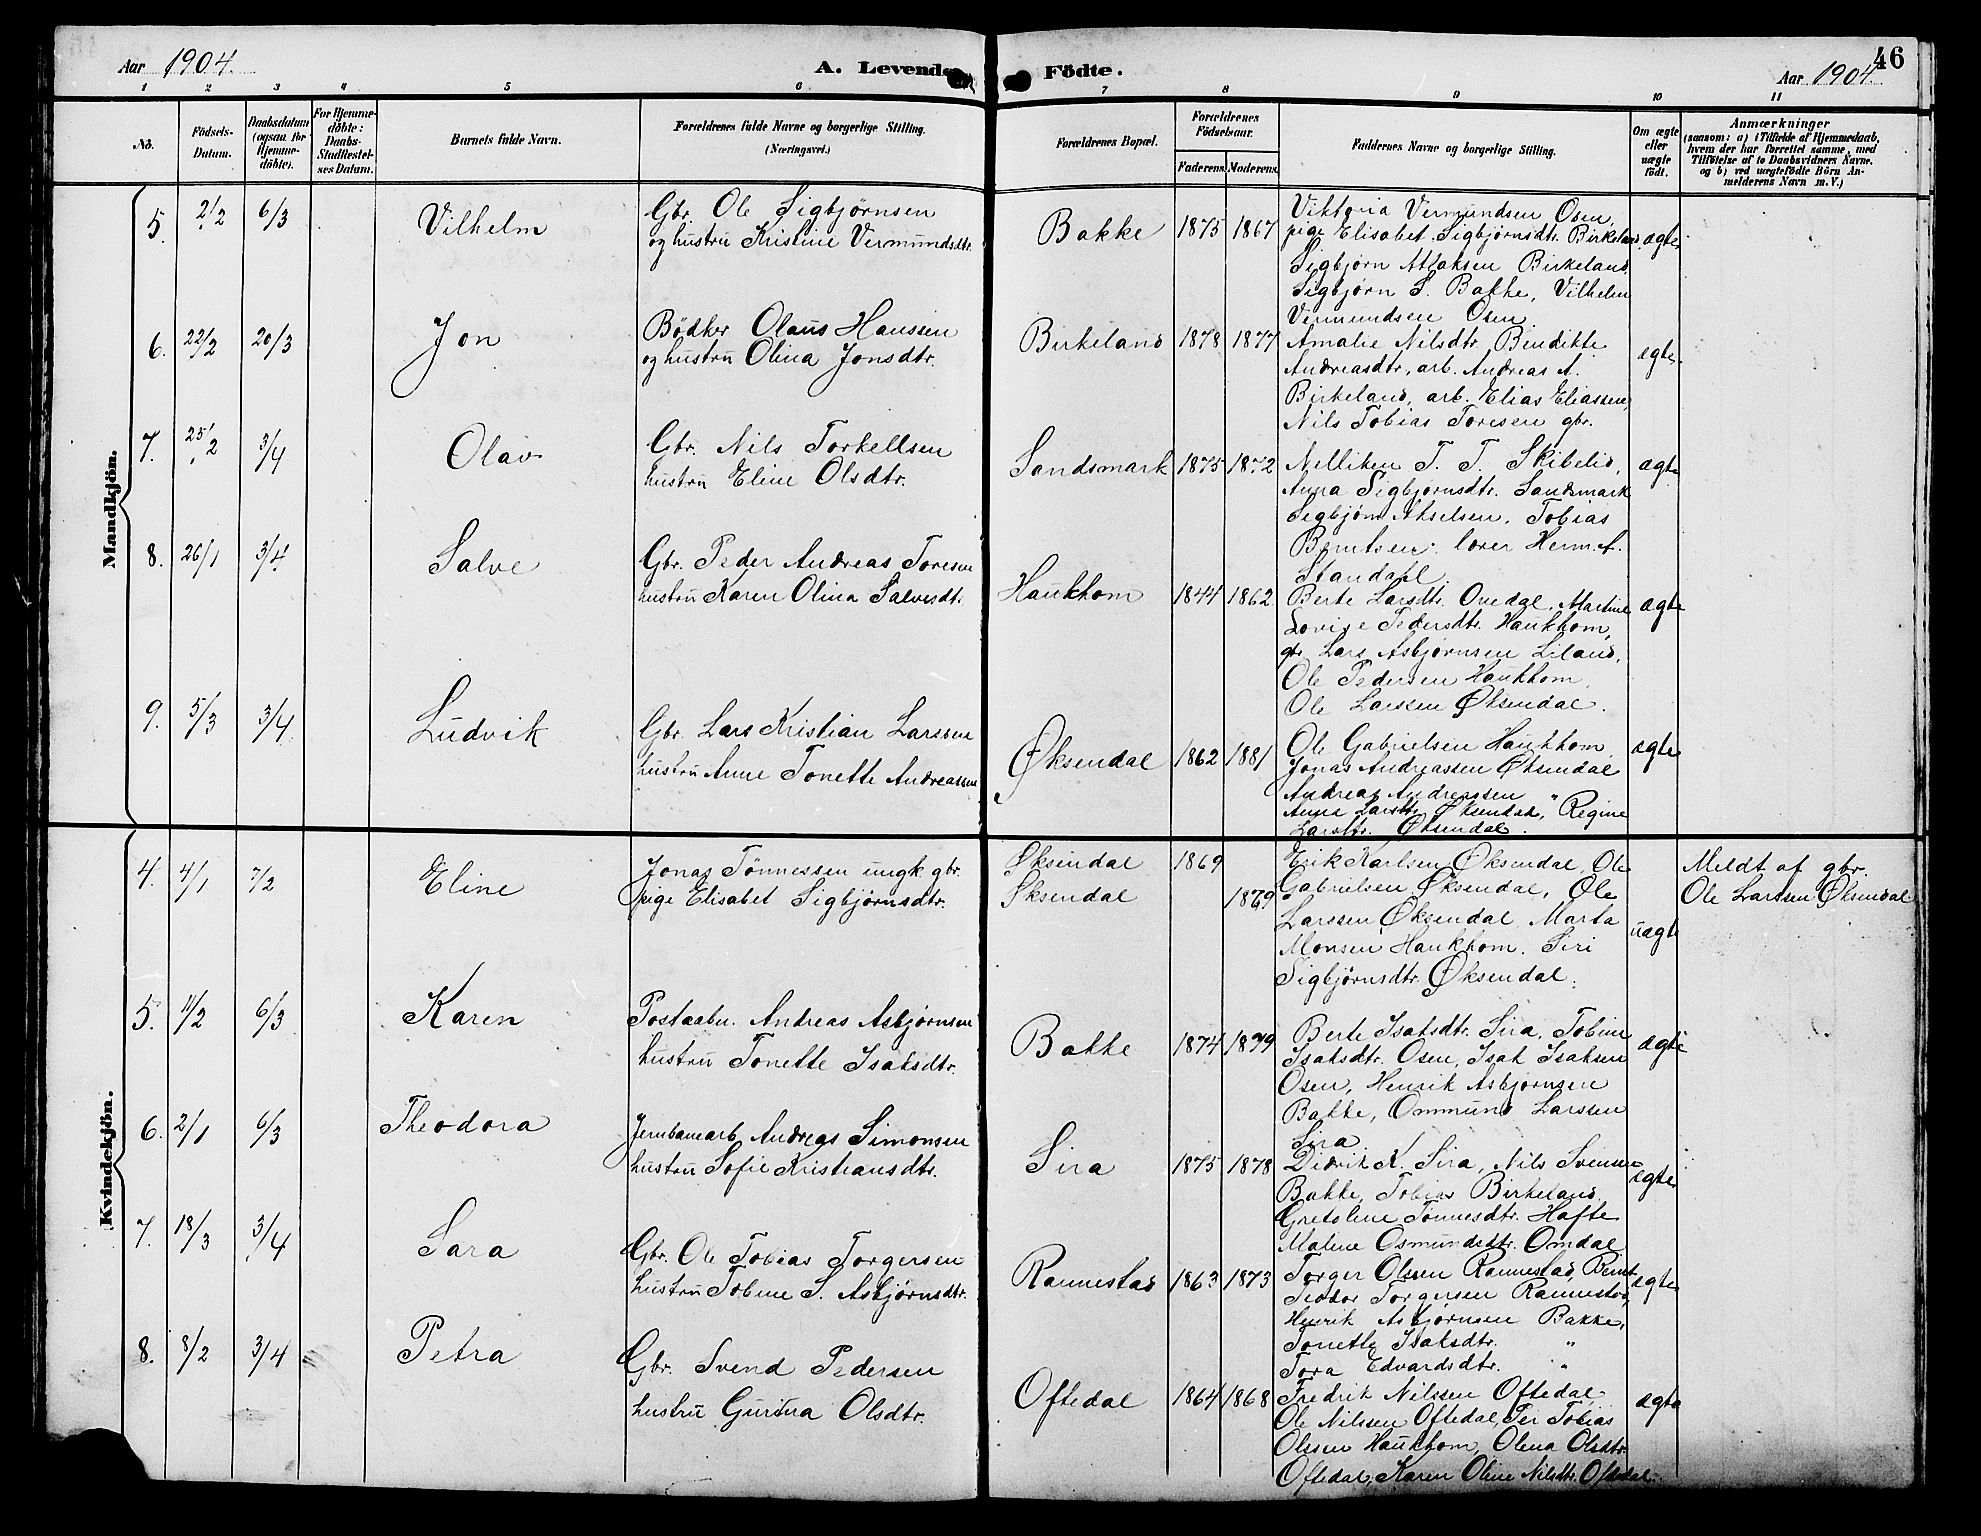 Aar 1904. A. Levende Födte. Aar 1904. 46
1 2 3 4 5 6 7 8 9 10 11
No.
Födsels-Datum.
Daabsdatum (ogsaa for Hjemme-döbte).
For Hjemme-döbte: Daabs-Stadfæstelses Datum.
Barnets fulde Navn.
Forældrenes fulde Navne og borgerlige Stilling.
(Næringsvei.)
Forældrenes Bopæl.
Forældrenes Födselsaar.
Faderens. Moderens.
Faddernes Navne og borgerlige Stilling.
Om ægte eller uægte födt.
Anmærkninger
(saasom: a) i Tilfælde af Hjemmedaab, hvem der har forrettet samme, med Tilföielse af to Daabsvidners Navne. og b) ved uægtefödte Börn Anmelderens Navn m. V.)
Mandkjön.
5. 2/2 6/3 Vilhelm
Gbr. Ole Sigbjørnsen
og hustru Kristine Vermundsdtr.
Bakke 1875 1867
Viktoria Vermundsen Osen,
pige Elisabet Sigbjørnsdtr. Birkeland,
Sigbjørn Atlaksen Birkeland,
Sigbjørn S. Bakke, Vilhelm
Vermundsen Osen
ægte
6. 22/2 20/3 Jon
Bødker Olaus Hanssen
og hustru Olina Jonsdtr.
Birkeland 1878 1877
Amalie Nilsdtr, Bendikte
Andreasdtr, arb. Andreas A.
Birkeland, arb. Elias Eliassen,
Nils Tobias Toresen gbr.
ægte
7. 25/2 3/4 Olav
Gbr. Nils Torkellsen
hustru Eline Olsdtr.
Sandsmark 1875 1872
Nelliken T. T. Skibelid,
Anna Sigbjørnsdtr. Sandsmark
Sigbjørn Akselsen, Tobias
Berntsen, lærer Herm. A.
Standahl.
ægte
8. 26/1 3/4 Salve
Gbr. Peder Andreas Toresen
hustru Karen Olina Salvesdt.
Haukhom 1844 1862
Berte Larsdtr. Ovedal, Martine
Lovise Pedersdtr. Haukhom,
gbr. Lars Asbjørnsen Liland,
Ole Pedersen Haukhom,
Ole Larssen Øksendal.
ægte
9. 5/3 3/4 Ludvik
Gbr. Lars Kristian Larssen
hustru Anne Tonette Andreassen
Øksendal 1862 1881
Ole Gabrielsen Haukhom
Jonas Andreassen Øksendal
Andreas Andreassen "
Anna Larsdtr. Øksendal, Regine
Larsdtr. Øksendal.
ægte
Kvindekjön.
4. 4/1 7/2 Eline
Jonas Tønnessen ungk. gbr.
pige Elisabet Sigbjørnsdtr.
Øksendal 1869
Øksendal 1879
Erik Karlsen Øksendal, Ole
Gabrielsen Øksendal, Ole
Larssen Øksendal, Marta
Monsen Haukhom. Siri
Sigbjørnsdtr. Øksendal.
uægte
Meldt af gbr.
Ole Larssen Øksendal
5. 11/2 6/3 Karen
Postaabn. Andreas Asbjørnsen
hustru Tonette Isaksdtr.
Bakke 1874 1879
Berte Isaksdtr. Sira, Tobine
Isaksdtr. Osen, Isak Isaksen
Osen, Henrik Asbjørnsen
Bakke, Ommund Larssen
Sira
ægte
6. 2/1 6/3 Theodora
Jernbanearb. Andreas Simonsen
hustru Sofie Kristiansdtr.
Sira 1875 1878
Didrik K. Sira, Nils Svensen
Bakke, Tobias Birkeland,
Gretolene Tønnesdtr. Hafte
Malene Osmundsdtr. Omdal
ægte
7. 18/3 3/4 Sara
Gbr. Ole Tobias Torgersen
hustru Tobine S. Asbjørnsdtr.
Rannestad 1863 1873
Torger Olsen Rannestad, Bernt
Teodor Torgersen Rannestad,
Henrik Asbjørnsen Bakke,
Tonette Isaksdtr. "
Tora Edvardsdtr. "
ægte
8. 8/2 3/4 Petra
Gbr. Svend Pedersen
hustru Gurina Olsdtr.
Oftedal 1864 1868
Fredrik Nilssen Oftedal,
Ole Nilssen Oftedal, Per Tobias
Olssen Haukhom, Olena Olsdtr.
Oftedal, Karen Oline Nilsdtr. Oftedal.
ægte